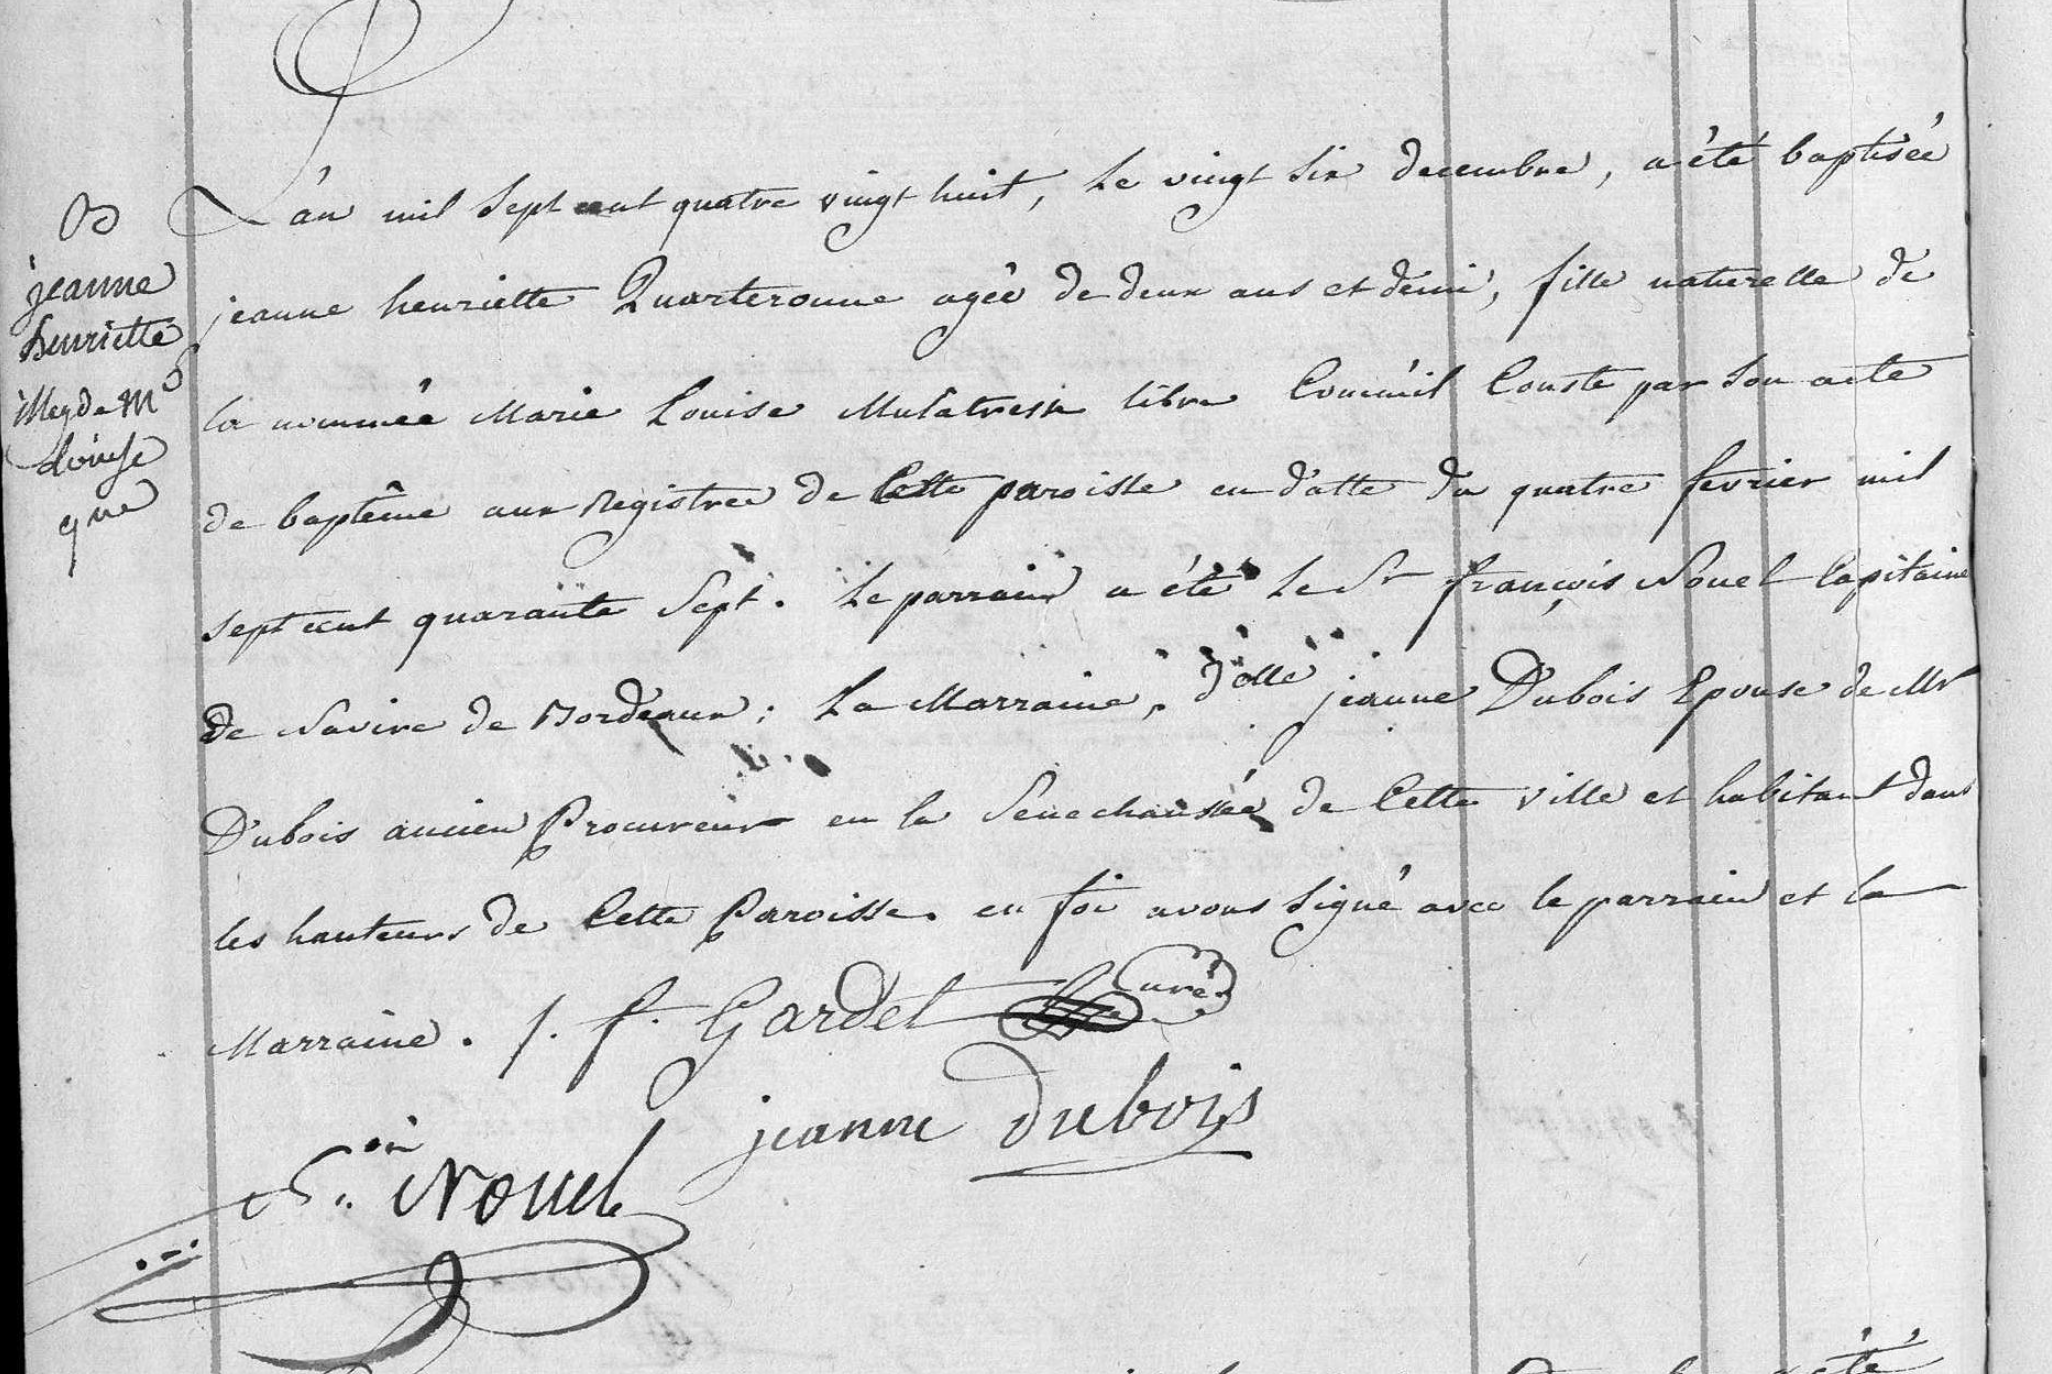 B
jeanne
henriette
illeg de M
Louise
qne
L'an mil Sept cent quatre vingt huit, Le vingt Six decembre, a été baptisée
jeanne henriette Quarteronne agée de deux ans et demi, fille naturelle de
la nommée Marie Louise Mulatresse libre Comm'il Conste par Son acte
de baptême aux Registres de Cette paroisse en datte du quatre fevrier mil
Sept cent quarante Sept. Le parrain a été Le Sr françois Nouel Capitaine
de Navire de Bordeaux; La Marraine, d'elle jeanne Dubois Epouse de Mr
Dubois ancien Procureur en la Senechaussée de Cette ville et habitant dans
les hauteurs de Cette Paroisse. en foi avons Signé avec le parrain et la
Marraine. f. f. Gardel Curé
jeanne dubois
Nouel